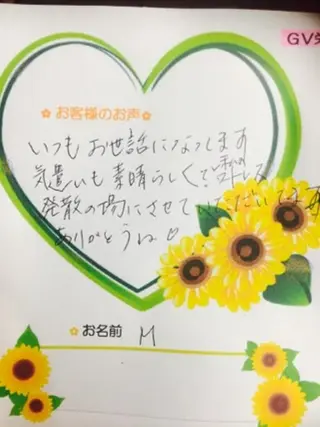 GV
お客様のお声
いつもお世話になってます
気遣いも素晴らしくて
発散の場にさせていただいてます
ありがとうね♡
お名前 M